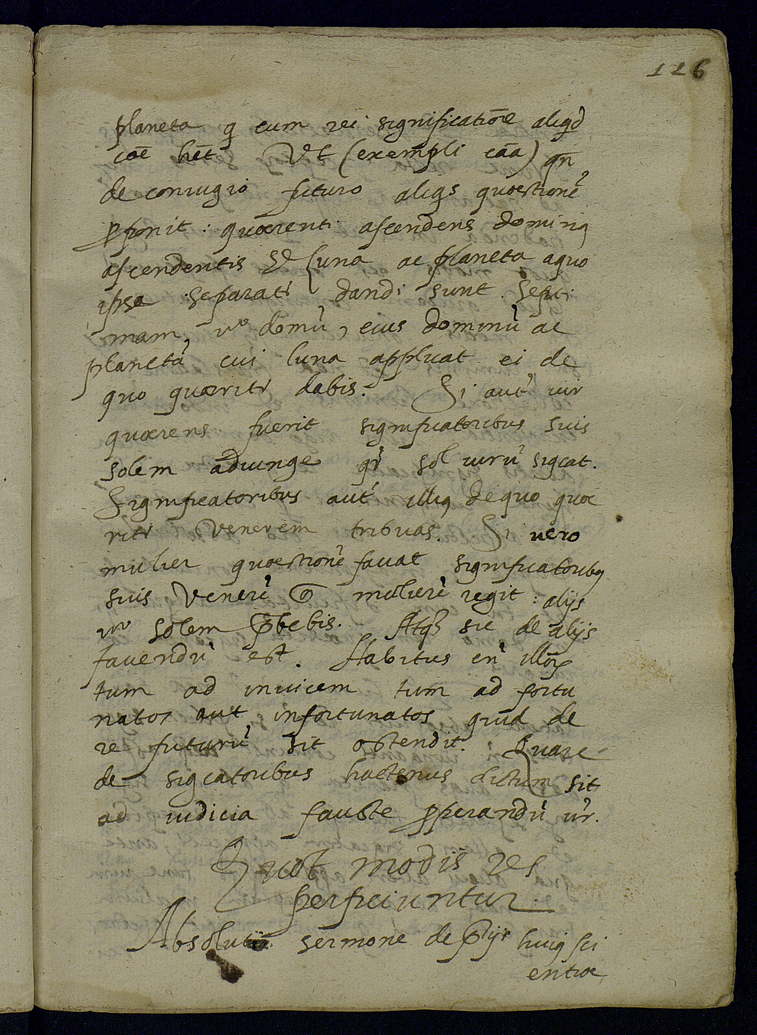 126
planeta q̄ cum rei significatiōe aliqd
cōe hēt. Ut (exempli cāa) qn̄
de coniugio futuro aliqs quœstionē
ꝓponit: quœrenti ascendens dominꝯ
ascendentis et luna ac planeta aquo
ipsa separatr dandi sunt. Septi
mam, vo domū, eius dominū ac
planetā cui luna applicat ei de
quo quœritr dabis. Si autē uir
quœrens fuerit significatoribus suis
solem adiunge qr̄ sol uirū sigcat.
Significatoribus autē illiꝯ de quo quœ
ritr Venerem tribuas. Si uero
mulier quœstionē faciat significatoribꝯ
suis Venerē mulierē regit: alijs
vo solem p̄bebis. Atqꝫ sic de alijs
faciendū est. Habitus en̄ illoꝝ
tum ad inuicem tum ad fortu
natos aut infortunatos quid de
re futurū sit ostendit. Quare
de sigcatoribus hactenus dictum sit
ad iudicia fauste ꝓperandū ur̄.
Quot modis res
perficiuntur.
Absoluto sermone de p̄ijs huiꝯ sci
entiœ